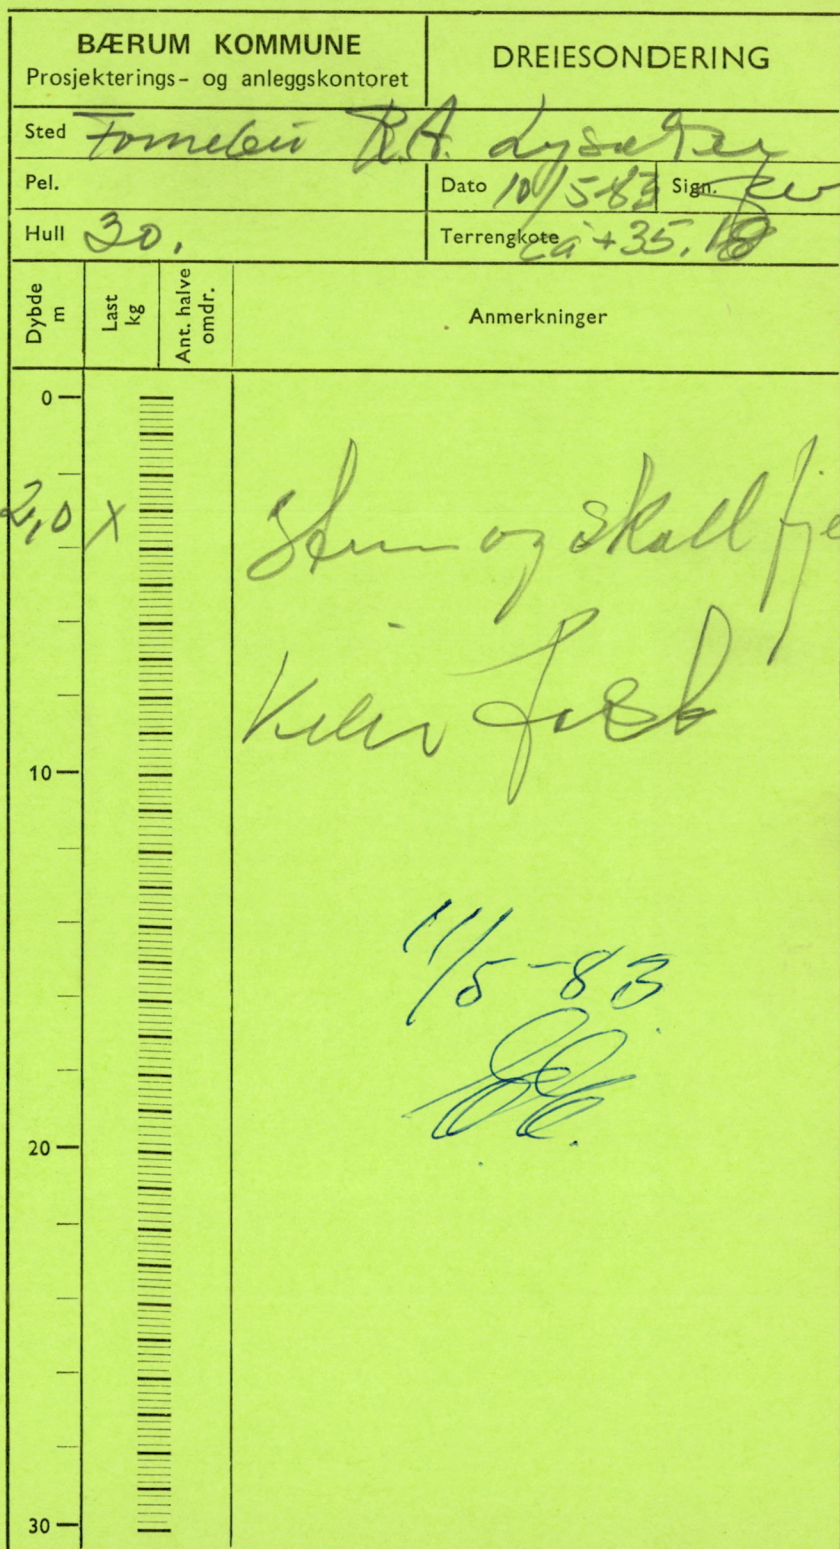 BÆRUM KOMMUNE
Prosjekterings- og anleggskontoret
DREIESONDERING
Sted Fornebu R.A. Lysaker
Pel.
Dato 10/5-83 Sign.
Hull 30.
Terrengkote ca +35.
Dybde m
Last kg
Ant. halve omdr.
Anmerkninger
0
2,0 X og skall fje
10
11/5-83
20
30